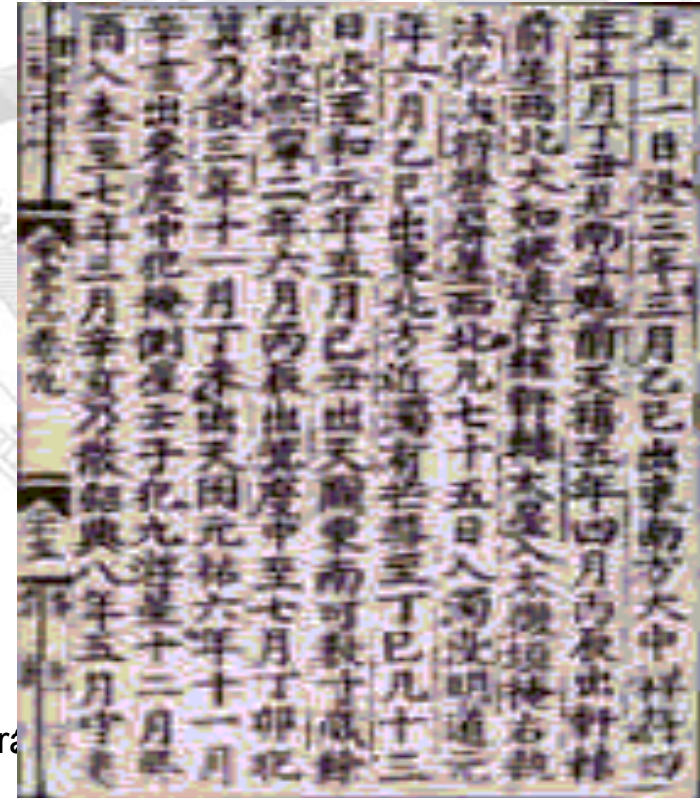 見十一日沒三年三月乙巳出東南方大中祥符四
年正月丁丑見南斗魁前天禧五年四月丙辰出軒轅
前星西北大如桃速行經軒轅太星入太微垣掩右執
法犯次將歷屏星西北凡七十五日入濁沒明道元
年六月乙巳出東北方近濁有芒彗至丁巳凡十三
日沒至和元年五月己丑出天關東南可數寸歲餘
稍沒熙寧二年六月丙辰出箕度中至七月丁卯犯
箕乃散三年十一月丁未出天囷元祐六年十一月
辛亥出參度中犯掩側星壬子犯九斿星十二月癸
酉入奎至七年三月辛亥乃散紹興八年五月守婁
rá